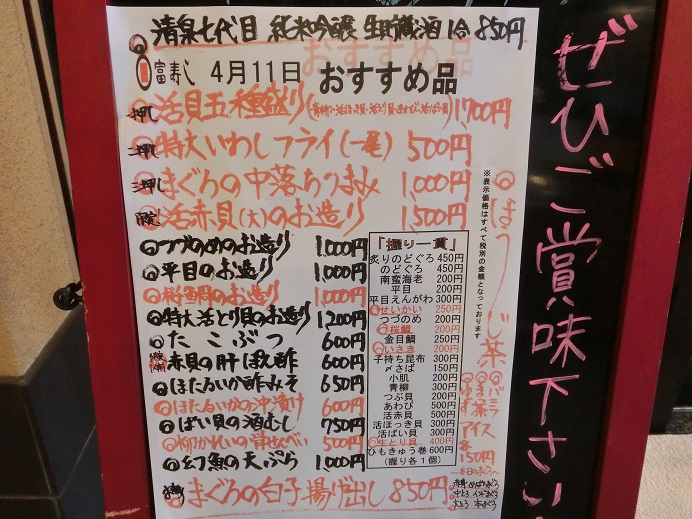 清泉七代目 純米吟醸 生貯蔵酒 1合 850円
富寿し 4月11日 おすすめ品
一押し 活貝五種盛り 1,700円
二押し 特大いわしフライ(一尾) 500円
三押し まぐろの中落ちつまみ 1,000円
活赤貝(大)のお造り 1,500円
つづのめのお造り 1,000円
平目のお造り 1,000円
桜鯛のお造り 1,000円
特大活とり貝のお造り 1,200円
たこぶつ 600円
赤貝の肝ぽん酢 600円
ほたるいか酢みそ 650円
ほたるいかの沖漬け 600円
ばい貝の酒むし 750円
柳かれいの骨せんべい 500円
幻魚の天ぷら 1,000円
まぐろの白子揚げ出し 850円
「握り一貫」
炙りのどぐろ 450円
のどぐろ 450円
南蛮海老 200円
平目 200円
平目えんがわ 300円
せいかい 250円
つづのめ 200円
桜鯛 200円
金目鯛 250円
いさき 200円
子持ち昆布 300円
〆さば 150円
小肌 200円
青柳 300円
つぶ貝 200円
あわび 500円
活赤貝 500円
活ほっき貝 300円
活ばい貝 300円
生とり貝 400円
ひもきゅう巻 600円
(握り各1個)
※表示価格はすべて税別の金額となっております
ほうじ茶
バニラ
まっ茶
ゆず
アイス
各150円
〜本日のまぐろ〜
ぜひご賞味下さい